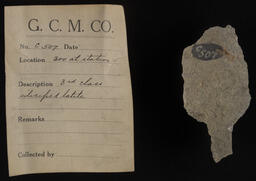 G. C. M. CO.
No. C.507 Date
Location 300 at station
Description 3rd class
silicified latite
Remarks
Collected by
C507